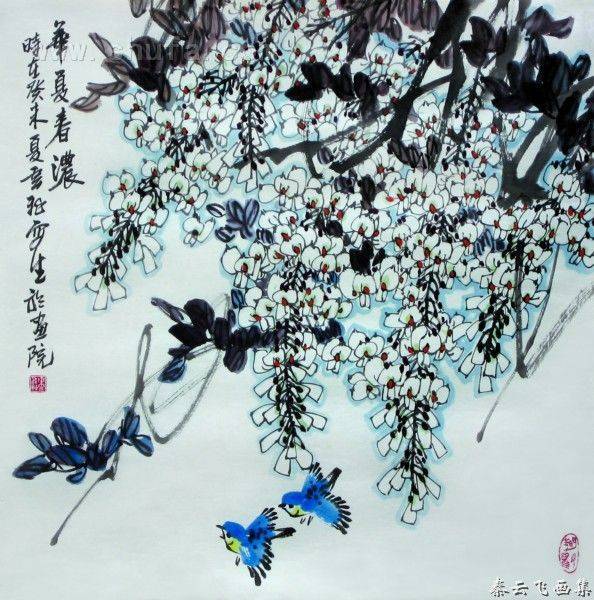 華夏春濃
時在癸未夏雲飛写生於畫院
秦云飞画集